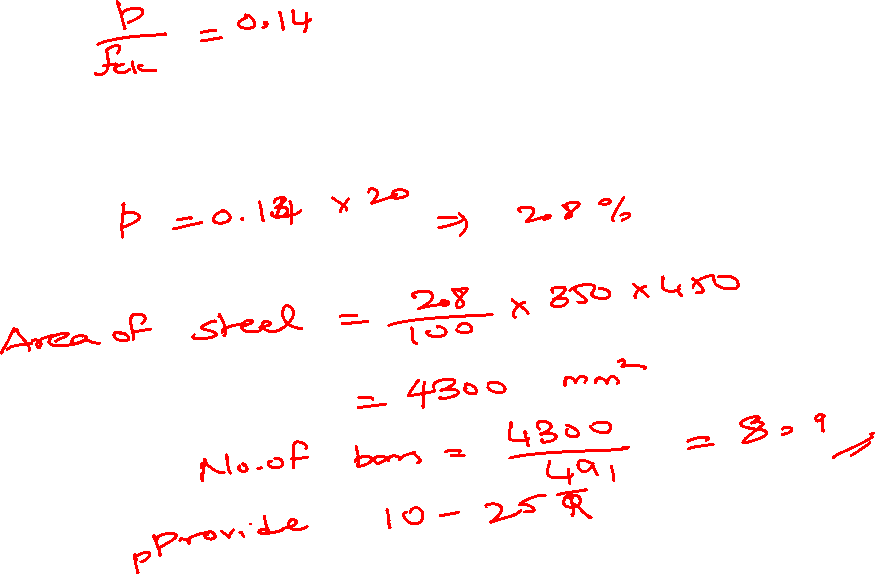 p / fck = 0.14
p = 0.14 × 20 ⇒ 2.8 %
Area of steel = 2.8 / 100 × 350 × 450
= 4300 mm²
No. of bars = 4300 / 491 = 8.9
pProvide 10 - 25